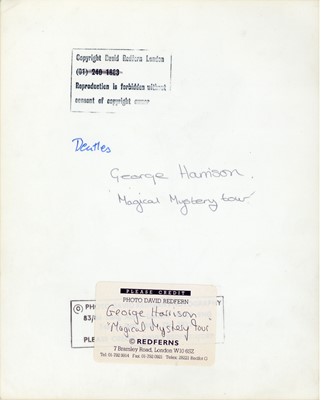 Copyright David Redfern London
(01) 240 1883
Reproduction is forbidden without
consent of copyright owner
Beatles
George Harrison.
'Magical Mystery tour'
PLEASE CREDIT
PHOTO DAVID REDFERN
George Harrison
'Magical Mystery Tour
© REDFERNS
7 Bramley Road, London W10 6SZ
PH
83/
PLE